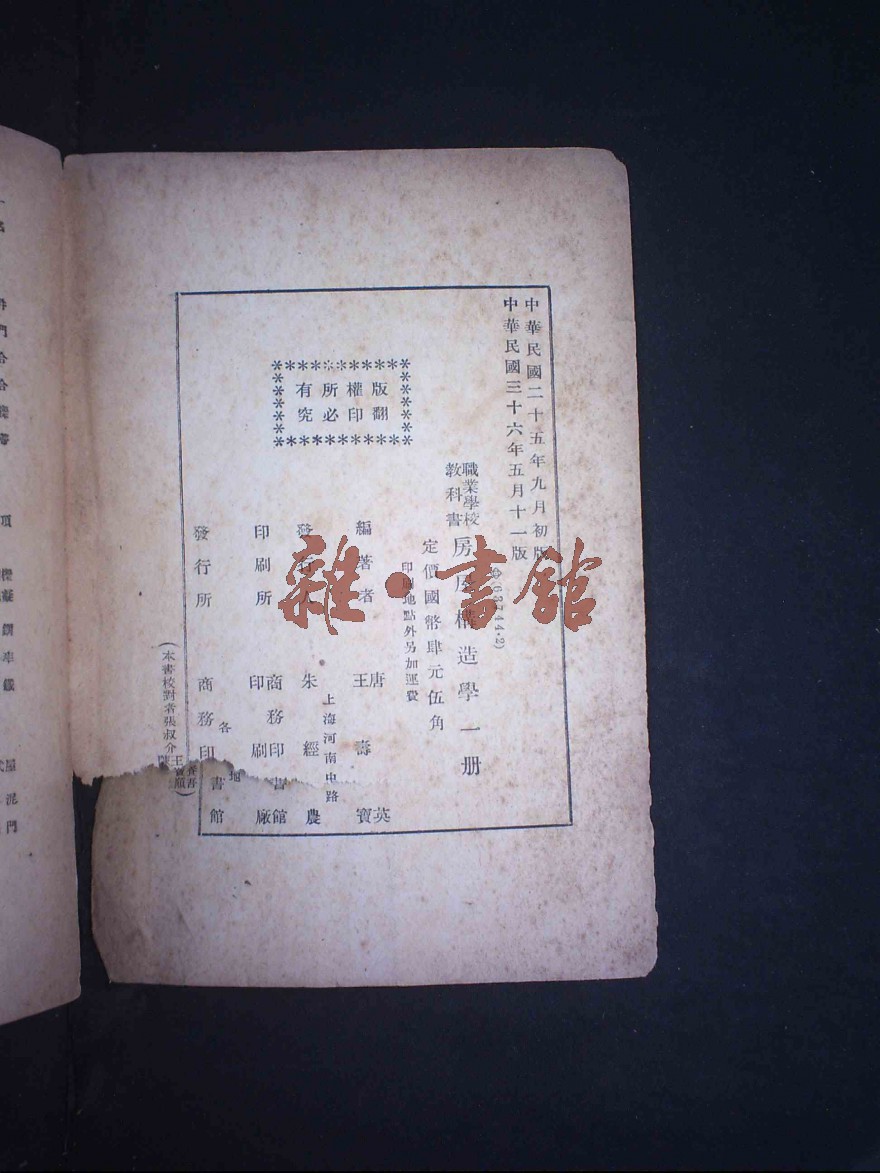 中華民國二十五年九月初版
中華民國三十六年五月十一版
(63744·2)
職業學校
教科書
房屋構造學一册
定價國幣肆元伍角
印刷地點外另加運費
版權所有
翻印必究
編著者
唐英
王壽寶
上海河南中路
發行人
朱經農
印刷所
商務印書館
印刷廠
發行所
各地
商務印書館
(本書校對者張叔介
雜·書館